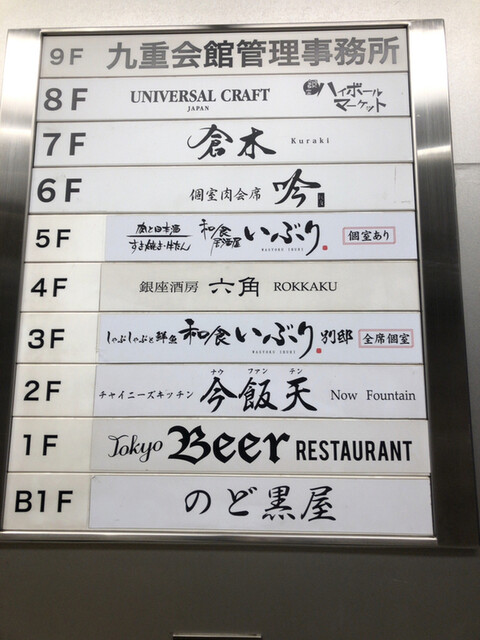 9F 九重会館管理事務所
8F UNIVERSAL CRAFT JAPAN ハイボールマーケット
7F 倉木 Kuraki
6F 個室肉会席 吟
5F 肉と日本酒 すき焼き・牛たん 和食居酒屋 いぶり。 個室あり
4F 銀座酒房 六角 ROKKAKU
3F しゃぶしゃぶと鮮魚 和食 いぶり。 別邸 全席個室
2F チャイニーズキッチン 今飯天 ナウ ファン テン Now Fountain
1F Tokyo Beer RESTAURANT
B1F のど黒屋